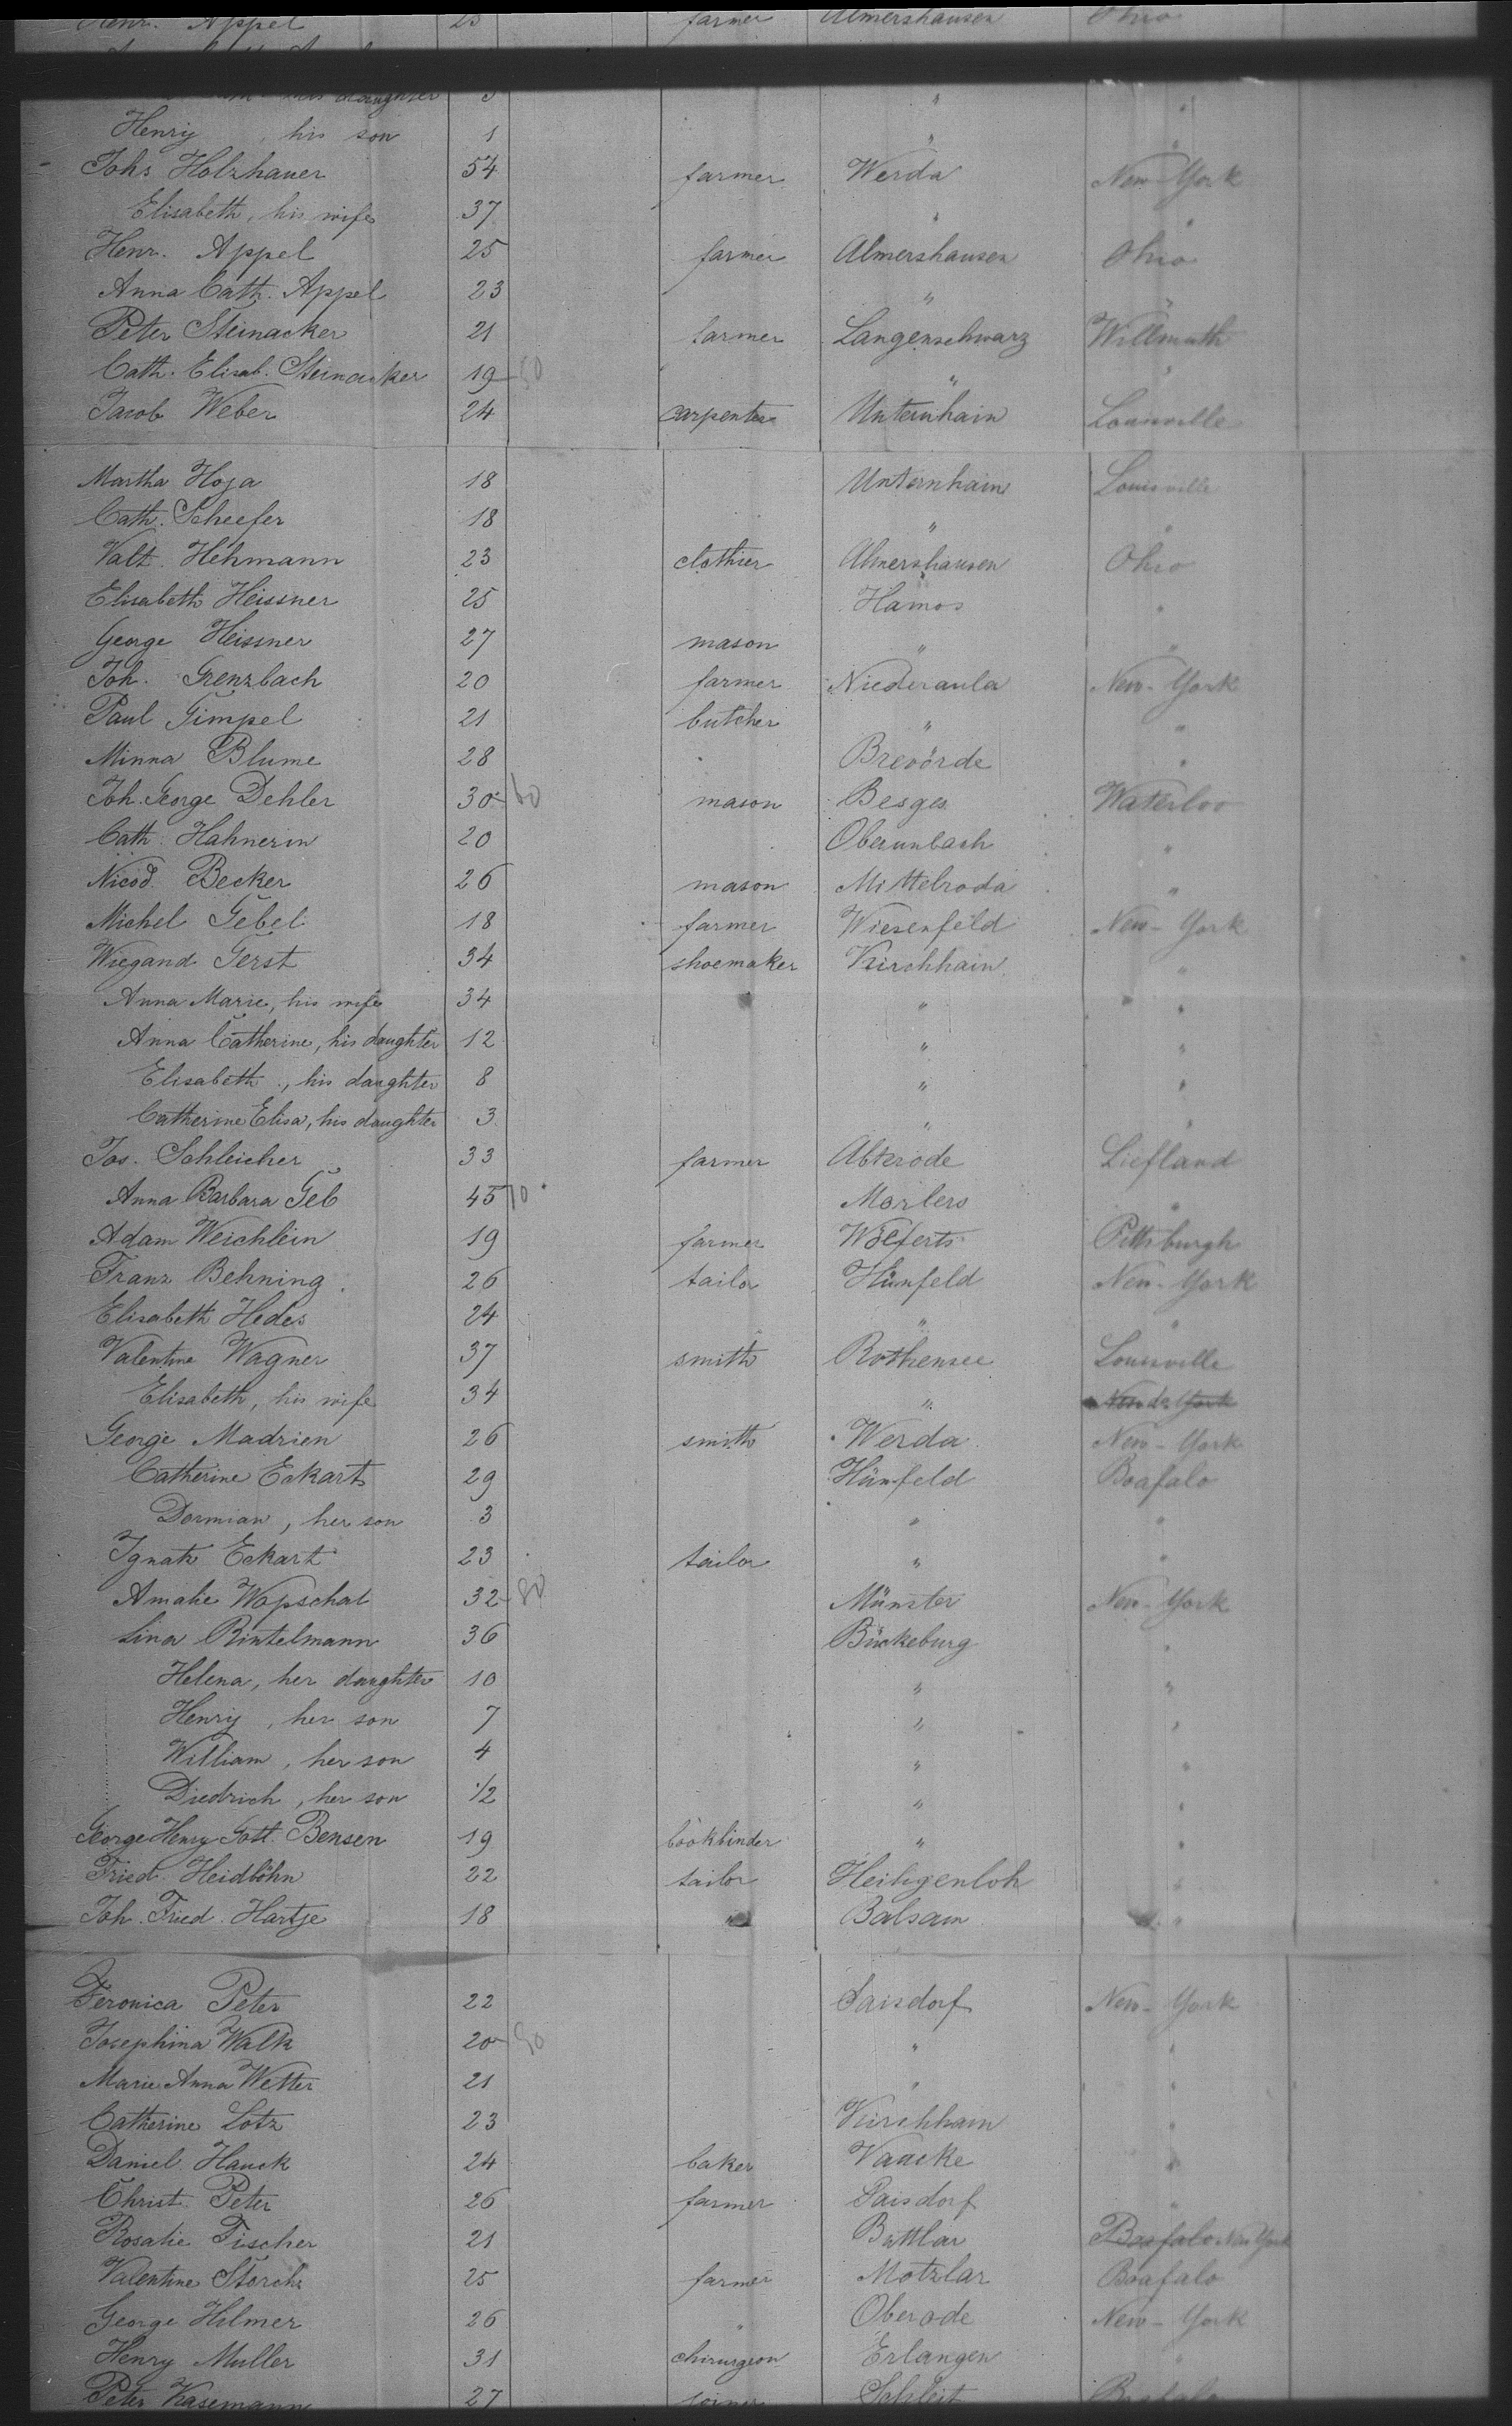 Henr. Appel 25 farmer Almershausen Ohio
his daughter 3 " "
Henry, his son 1 " "
Johs Holzhauer 54 farmer Werda New-York
Elisabeth, his wife 37 " "
Henr. Appel 25 farmer Almershausen Ohio
Anna Cath. Appel 23 " "
Peter Steinacker 21 farmer Langenschwarz Willmuth
Cath. Elisab. Steinacker 19 50 " "
Jacob Weber 24 carpenter Unternhain Louisville
Martha Hoja 18 Unternhain Louisville
Cath. Scheefer 18 " "
Valt. Hehmann 23 clothier Almershausen Ohio
Elisabeth Heissner 25 Hamos "
George Heissner 27 mason " "
Joh. Grenzbach 20 farmer Niederaula New-York
Paul Gimpel 21 butcher " "
Minna Blume 28 Brevörde "
Joh. George Dehler 30 60 mason Besges Waterloo
Cath. Hahnerin 20 Oberunbach "
Nicod. Becker 26 mason Mittelroda "
Michel Gebel 18 farmer Wiesenfeld New-York
Wiegand Gerst 34 shoemaker Kirchhain "
Anna Marie, his wife 34 " "
Anna Catherine, his daughter 12 " "
Elisabeth, his daughter 8 " "
Catherine Elisa, his daughter 3 " "
Jos. Schleicher 33 farmer Abterode Liefland
Anna Barbara Geb 45 70 Morlers "
Adam Weichlein 19 farmer Wölferts Pittsburgh
Franz Behning 26 tailor Hünfeld New-York
Elisabeth Hedes 24 " "
Valentine Wagner 37 smith Rothensee Louisville
Elisabeth, his wife 34 "
George Madrien 26 smith Werda New-York
Catherine Eckart 29 Hünfeld Boafalo
Dormian, her son 3 " "
Ignatz Eckart 23 tailor " "
Amalie Wopschal 32 80 Münster New-York
Lina Rintelmann 36 Bückeburg "
Helena, her daughter 10 " "
Henry, her son 7 " "
William, her son 4 " "
Diedrich, her son 1/2 " "
George Henry Gott. Bensen 19 bookbinder " "
Fried. Heidlöhn 22 tailor Heiligenloh "
Joh. Fried. Hartje 18 " Balsam "
Feronica Peter 22 Saisdorf New-York
Josephina Walk 20 90 " "
Marie Anna Wetter 21 " "
Catherine Lotz 23 Kirchhain "
Daniel Hauck 24 baker Vaacke "
Christ. Peter 26 farmer Saisdorf "
Rosalie Fischer 21 Buttlar Boafalo New York
Valentine Storch 25 farmer Motzlar Boafalo
George Hilmer 26 " Oberode New-York
Henry Muller 31 chirurgeon Erlangen "
Peter Kasemann 27 joiner Schleit Boafalo